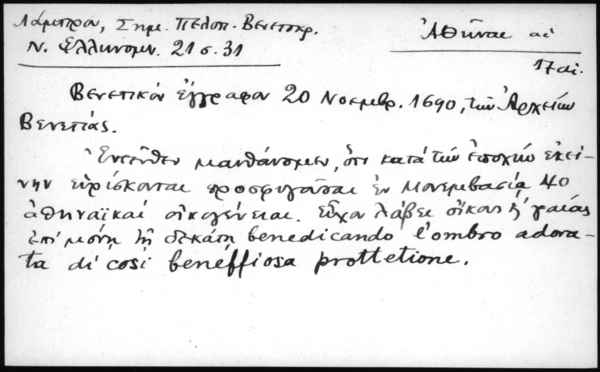 Λάμπρου, Σημ. Πελοπ. Βενετοκρ.
Ν. Ελληνομν. 21 σ. 31
Ἀθῆναι αἱ
17 αἰ.
Βενετικὸν ἔγγραφον 20 Νοεμβρ. 1690, τῶν Ἀρχείων
Βενετίας.
Ἐντεῦθεν μανθάνομεν, ὅτι κατὰ τὴν ἐποχὴν ἐκεί-
νην εὑρίσκονται προσφυγοῦσαι ἐν Μονεμβασίᾳ 40
ἀθηναϊκαὶ οἰκογένειαι. Εἶχον λάβει οἶκον ἢ γαίας
ἐπὶ μόνῃ τῇ δεκάτῃ benedicando l'ombro adora-
ta di cosi benéffiosa prottetione.